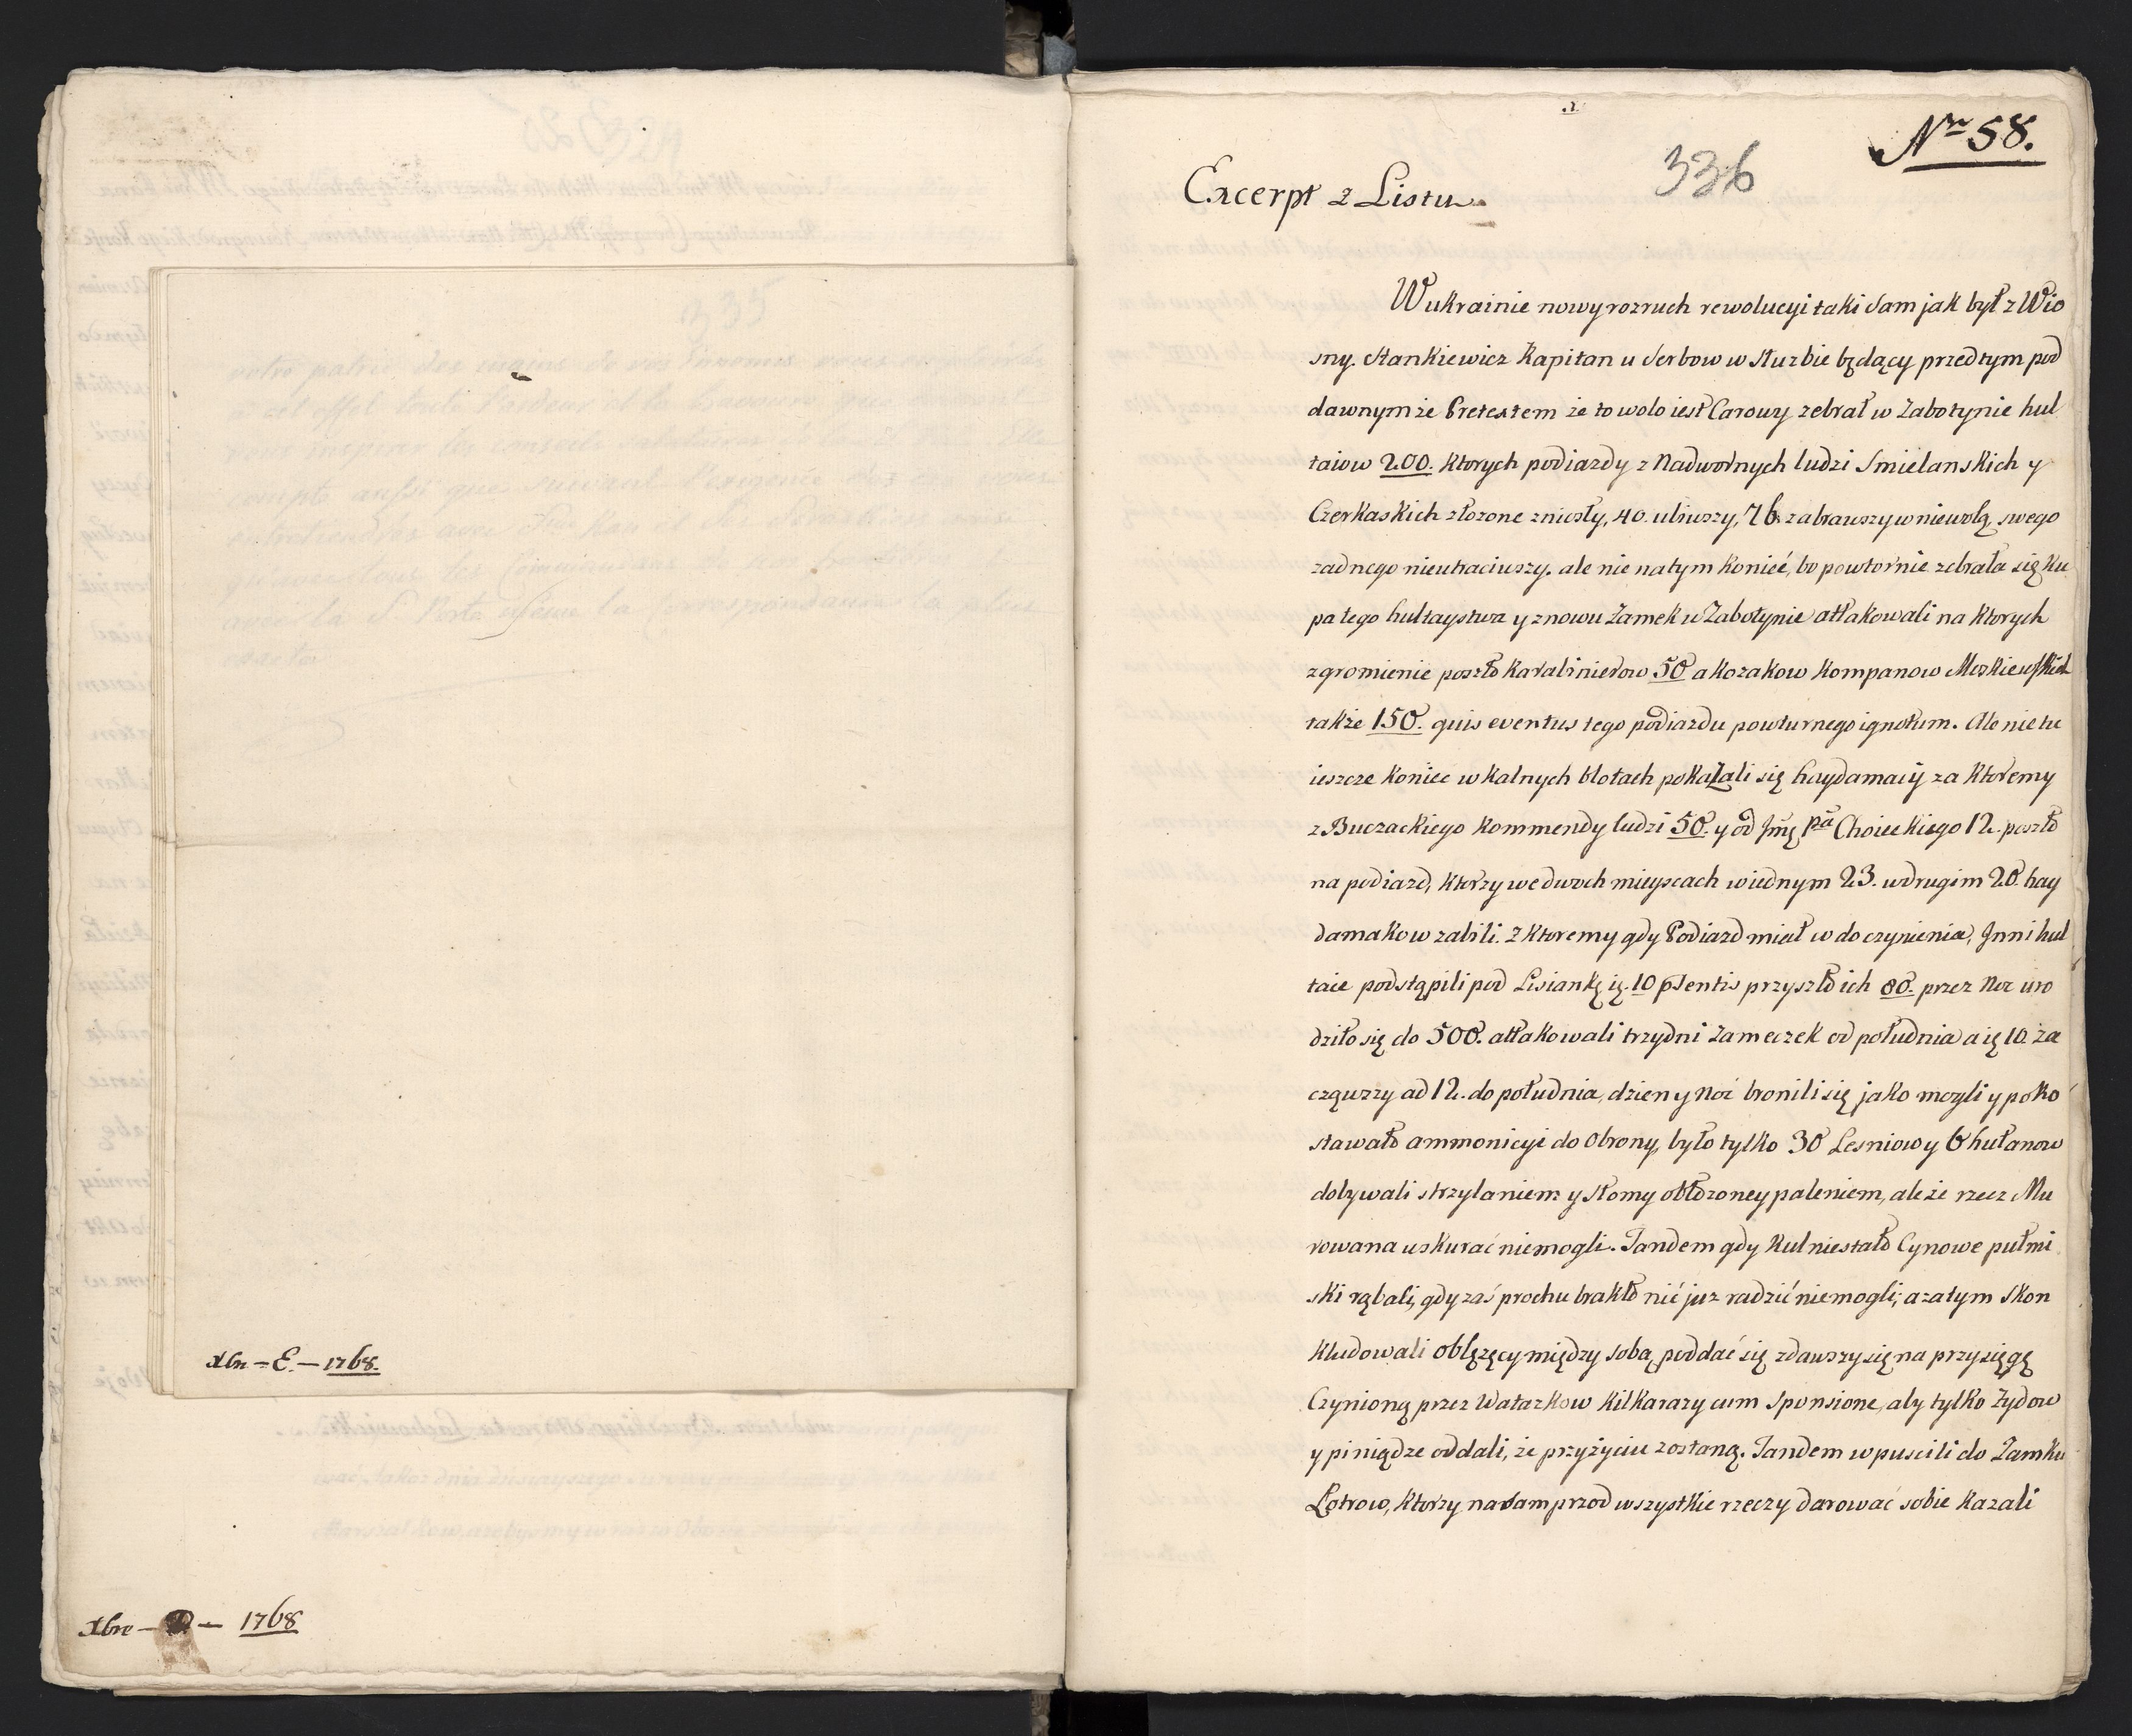 Xbr. – E. – 1768.
Xbre – D – 1768
Nro 58.
336
Excerpt z Listu.
W ukrainie nowy rozruch rewolucyi taki sam jak był z Wio
sny. Stankiewicz Kapitan u Serbow w służbie będący przed tym pod
dawnym że Pretextem że to wolo iest Carowy zebrał w Zabotynie hul
taiow 200. Ktorych podiazdy z Nadwornych ludzi Smielanskich y
Czerkaskich złozone zniosły, 40. ubiwszy, 76 zabrawszy w niewolą, swego
zadnego nieutraciwszy. ale nie na tym Konieć, bo powtornie zebrała się Ku
pa tego hultaystwa y znowu Zamek w Zabotynie attakowali na Ktorych
zgromienie poszło Karabinierow 50 a Kozakow Kompanow Moskiewskich
także 150. quis eventus tego podiazdu powturnego ignotum. Ale nie tu
ieszcze Koniec w Kalnych błotach pokazali się haydamacy za Ktoremy
z Buczackiego Kommendy ludzi 50. y od Jmę pa Choieckiego 12. poszło
na podiazd, Ktorzy we dwoch mieyscach w iednym 23. w drugim 20. hay
damakow zabili. Z Ktoremy gdy Podiazd miał w do czynienia, Inni hul
taie podstąpili pod Lisiankę ię. 10 psentis przyszło ich 80. przez Noc uro
dziło się do 500. attakowali trzy dni Zameczek od południa a ię 10. za
cząwszy ad 12. do południa, dzien y Noć bronili się jako mogli y poko
stawało ammonicyi do Obrony, było tylko 30 Lesniow y 6 hułanow
dobywali strzylaniem y słomy obłożoney paleniem, ale że rzecz Mu
rowana uskurać niemogli. Tandem gdy Kul niestało Cynowe pułmi
ski rąbali, gdy zaś prochu brakło nić juz radzić niemogli; a zatym skon
Kludowali oblęzęcy między sobą, poddać się zdawszy się na przysięgę
Czynioną przez Watazkow Kilkarazy cum Sponsione, aby tylko żydow
y pinięǳe oddali, że przy życiu zostaną. Tandem wpuscili do Zamku
Łotrow, Ktorzy nasamprzod wszystkie rzeczy darować sobie Kazali